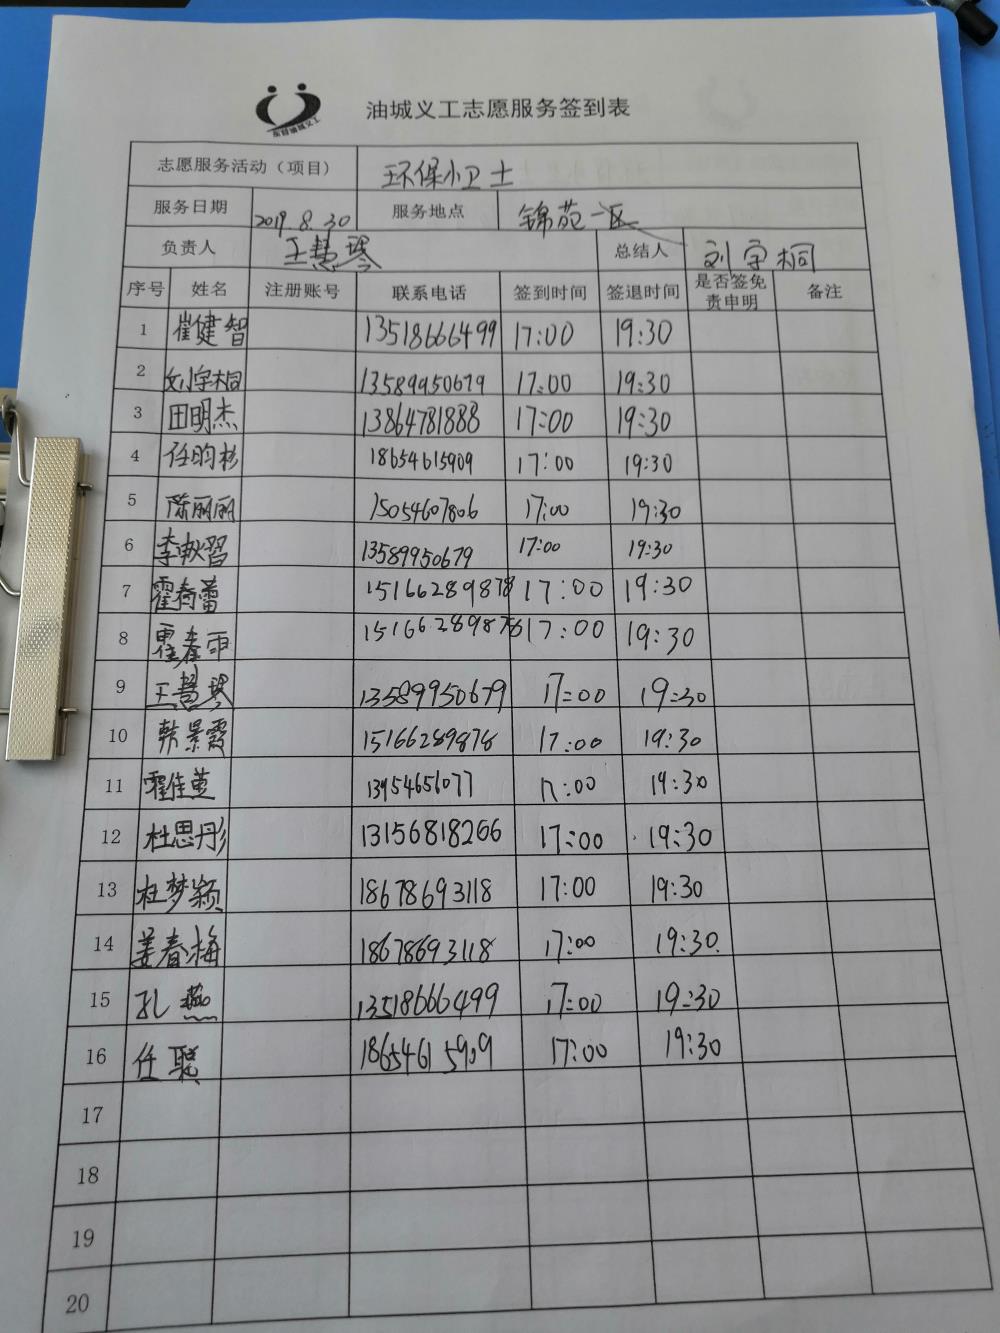 东营油城义工
油城义工志愿服务签到表
志愿服务活动（项目） 环保小卫士
服务日期 2019.8.30 服务地点 锦苑一区
负责人 王慧琴 总结人 刘宇桐
序号 姓名 注册账号 联系电话 签到时间 签退时间 是否签免责申明 备注
1 崔健智 13518666499 17:00 19:30
2 刘宇桐 13589950679 17:00 19:30
3 田明杰 13864781888 17:00 19:30
4 任昀杉 18654615909 17:00 19:30
5 陈丽丽 15054607806 17:00 19:30
6 李 13589950679 17:00 19:30
7 霍春蕾 15166289878 17:00 19:30
8 霍春雨 15166289878 17:00 19:30
9 王慧琴 13589950679 17:00 19:30
10 韩景霞 15166289878 17:00 19:30
11 霍佳萱 13954656077 17:00 19:30
12 杜思彤 13156818266 17:00 19:30
13 杜梦颖 18678693118 17:00 19:30
14 姜春梅 18678693118 17:00 19:30
15 孔燕 13518666499 17:00 19:30
16 任聪 18654615909 17:00 19:30
17
18
19
20